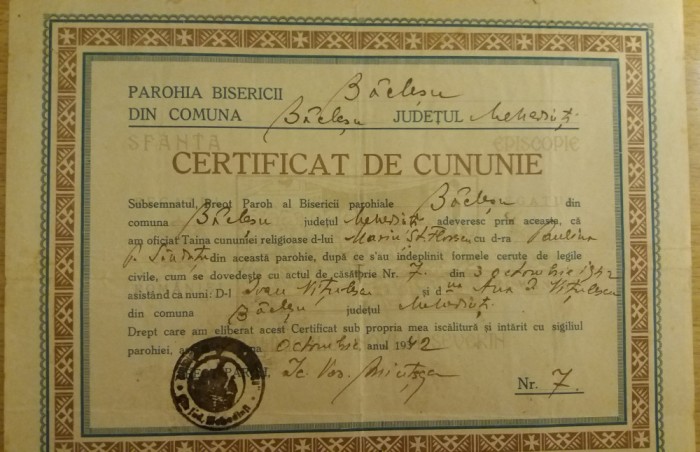 PAROHIA BISERICII Bâcleșu
DIN COMUNA Bâcleșu JUDEȚUL Mehedinți
SFANTA EPISCOPIE
CERTIFICAT DE CUNUNIE
Subsemnatul, Preot Paroh al Bisericii parohiale Bâcleșu din
comuna Bâcleșu județul Mehedinți adeveresc prin aceasta, că
am oficiat Taina cununiei religioase d-lui Marin St. cu d-ra Paulina
din această parohie, după ce s'au îndeplinit formele cerute de legile
civile, cum se dovedește cu actul de căsătorie Nr. 7. din 3 octombrie 1942
asistând ca nuni: D-l Ioan și d na Ana
din comuna Bâcleșu județul Mehedinți.
Drept care am eliberat acest Certificat sub propria mea iscălitură și întărit cu sigiliul
parohiei, octombrie anul 1942
SEVERIN
PAROH, Ic.
Nr. 7.